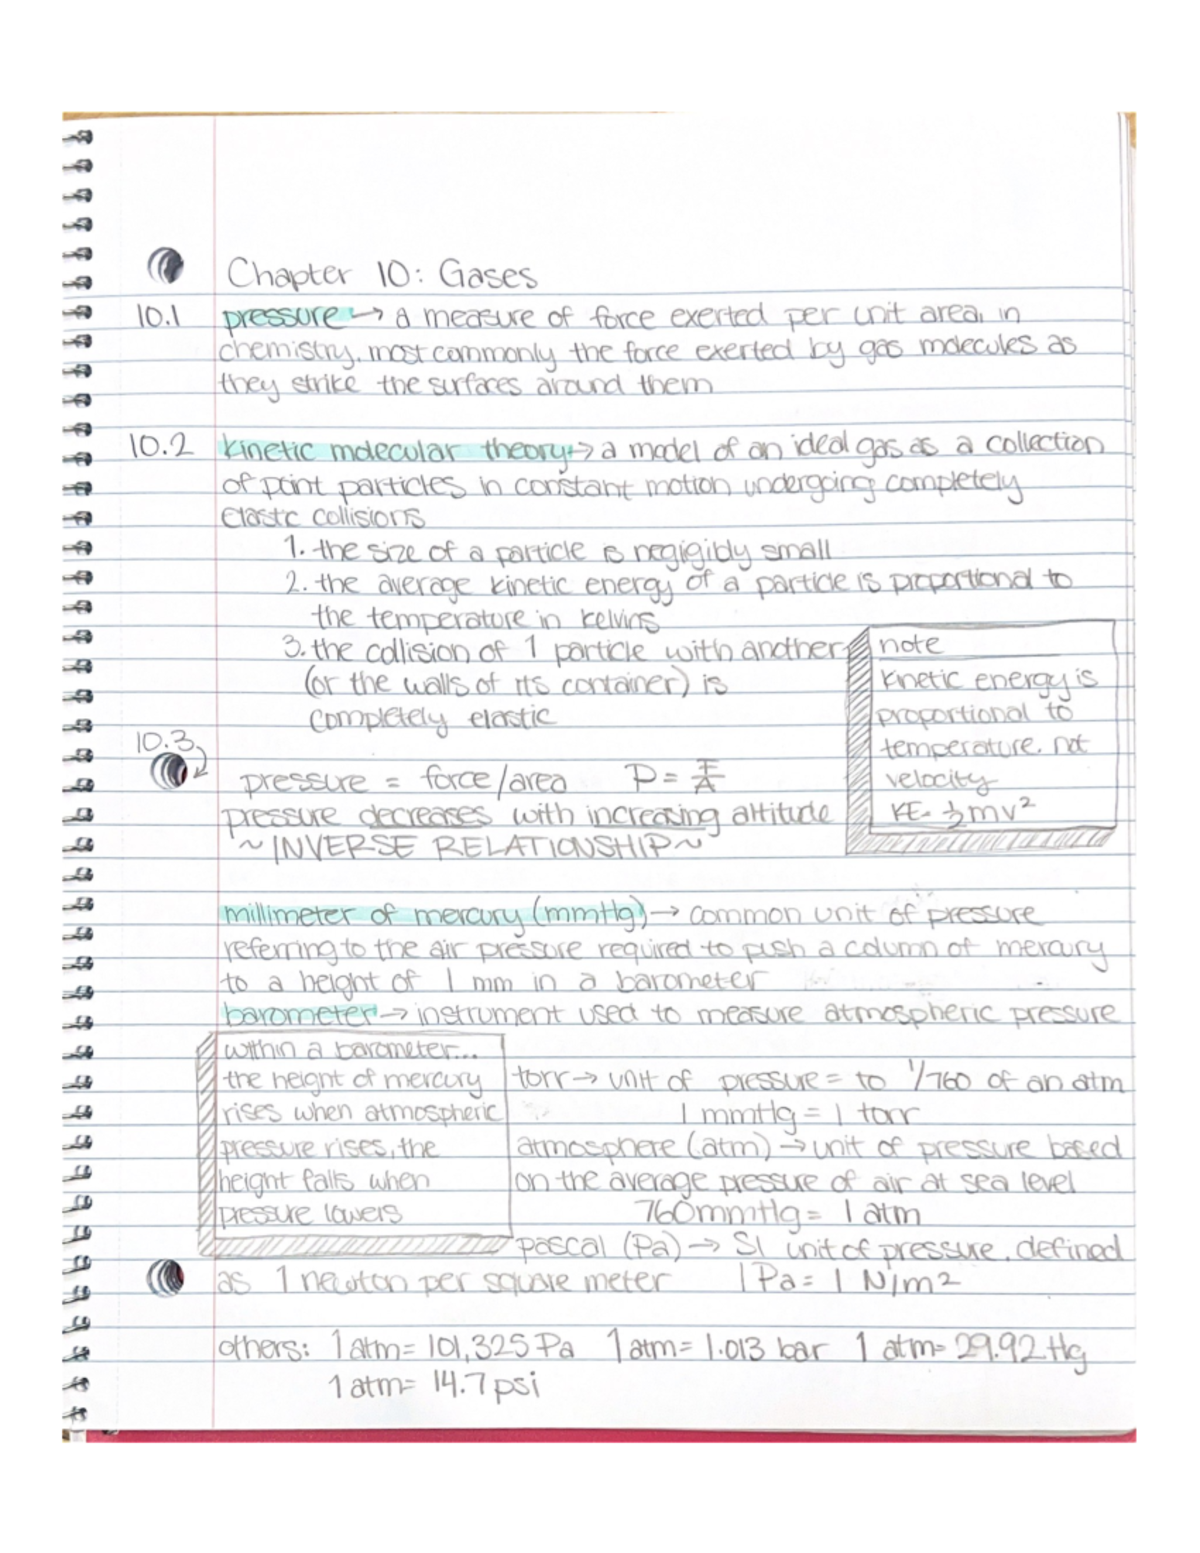 Chapter 10: Gases
10.1 pressure → a measure of force exerted per unit area, in
chemistry, most commonly the force exerted by gas molecules as
they strike the surfaces around them
10.2 kinetic molecular theory → a model of an ideal gas as a collection
of point particles in constant motion undergoing completely
elastic collisions
1. the size of a particle is negigibly small
2. the average kinetic energy of a particle is proportional to
the temperature in kelvins
3. the collision of 1 particle with another
(or the walls of its container) is
completely elastic
note
kinetic energy is
proportional to
temperature. not
velocity
KE = ½mv²
10.3
pressure = force/area P = F/A
pressure decreases with increasing altitude
~INVERSE RELATIONSHIP~
millimeter of mercury (mmHg) → common unit of pressure
referring to the air pressure required to push a column of mercury
to a height of 1 mm in a barometer
barometer → instrument used to measure atmospheric pressure
within a barometer...
the height of mercury
rises when atmospheric
pressure rises, the
height falls when
pressure lowers
torr → unit of pressure = to 1/760 of an atm
1 mmHg = 1 torr
atmosphere (atm) → unit of pressure based
on the average pressure of air at sea level
760mmHg = 1 atm
pascal (Pa) → SI unit of pressure. defined
as 1 newton per square meter 1 Pa = 1 N/m²
others: 1 atm = 101,325 Pa 1 atm = 1.013 bar 1 atm = 29.92 Hg
1 atm = 14.7 psi